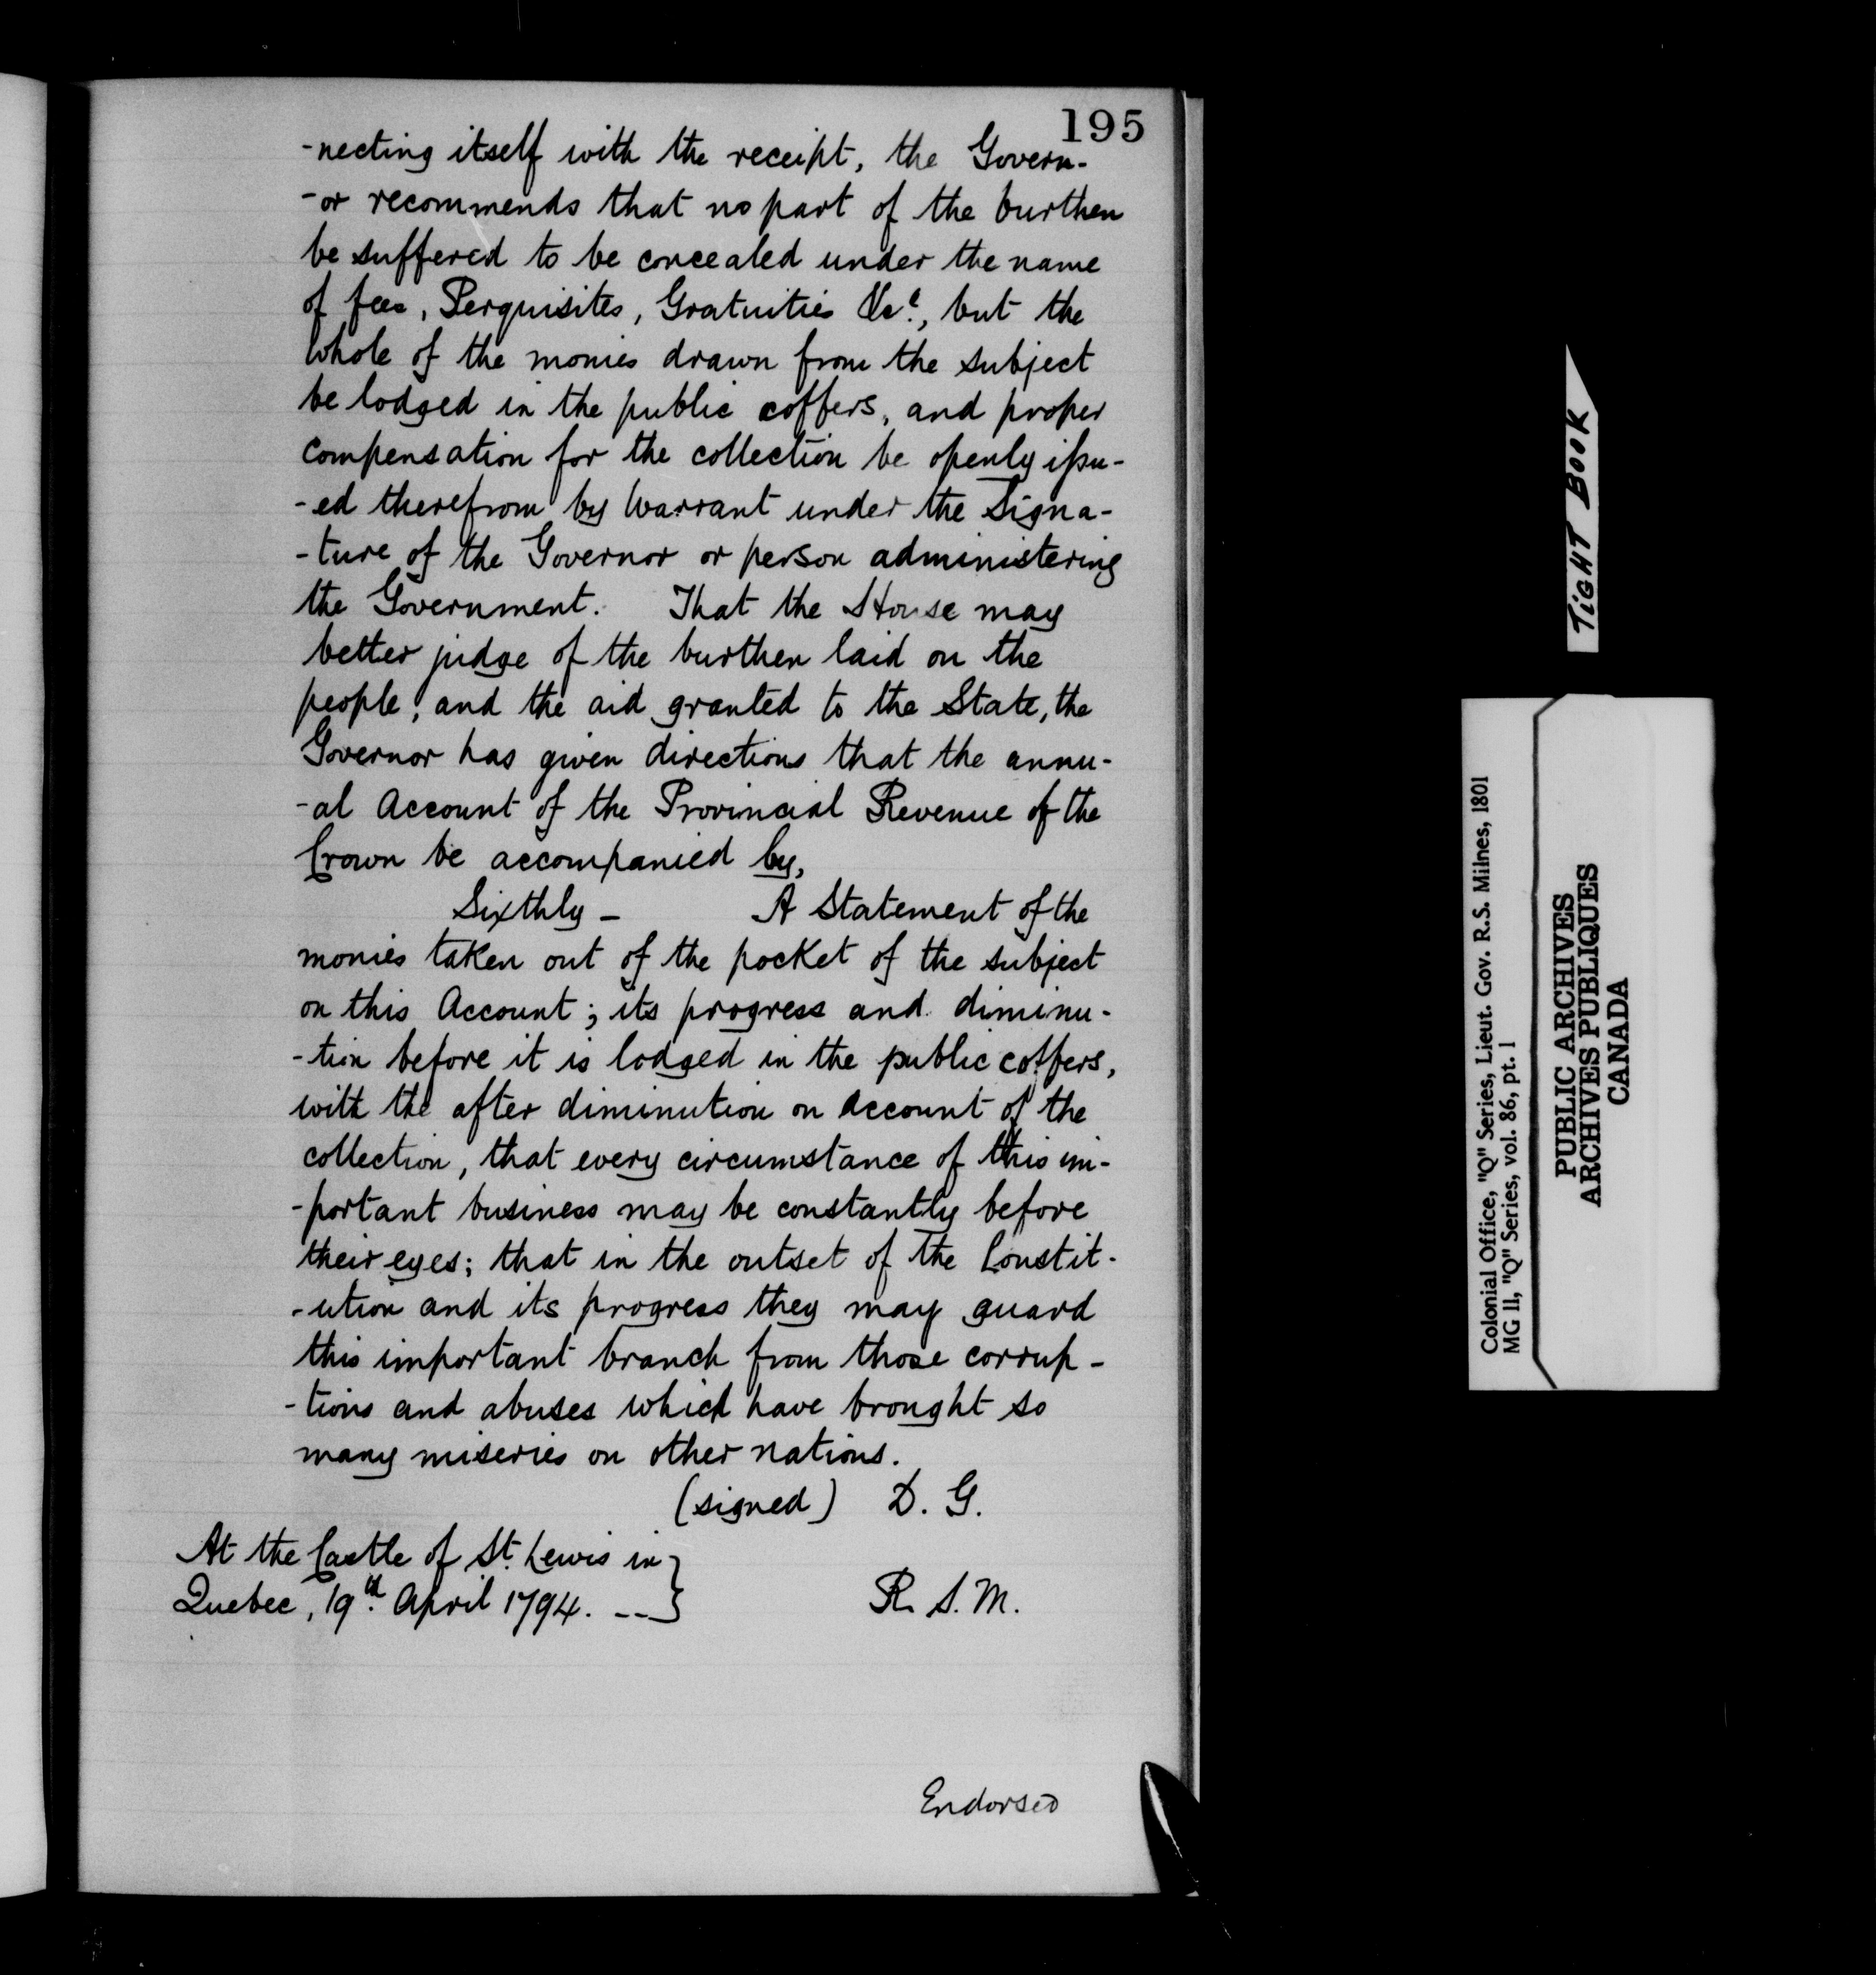 195
-necting itself with the receipt, the Govern-
-or recommends that no part of the burthen
be suffered to be concealed under the name
of fees, Perquisites, Gratuities &c?, but the
whole of the monies drawn from the subject
be lodged in the public coffers, and proper
compensation for the collection be openly issu-
-ed therefrom by Warrant under the Signa-
-ture of the Governor or person administering
the Government. That the House may
better judge of the burthen laid on the
people, and the aid granted to the State, the
Governor has given directions that the annu-
-al Account of the Provincial Revenue of the
Crown be accompanied by,
Sixthly - A Statement of the
monies taken out of the pocket of the subject
on this Account; its progress and diminu-
-tion before it is lodged in the public coffers,
with the after diminution on account of the
collection, that every circumstance of this im-
-portant business may be constantly before
their eyes; that in the outset of the Constit-
-ution and its progress they may guard
this important branch from those corrup-
-tions and abuses which have brought so
many miseries on other nations.
(signed) D. G.
At the Castle of St. Lewis in }
Quebec, 19th April 1794. -- }
R. S. M.
Endorsed
TIGHT BOOK
Colonial Office, "Q" Series, Lieut. Gov. R.S. Milnes, 1801
MG 11, "Q" Series, vol. 86, pt. 1
PUBLIC ARCHIVES
ARCHIVES PUBLIQUES
CANADA